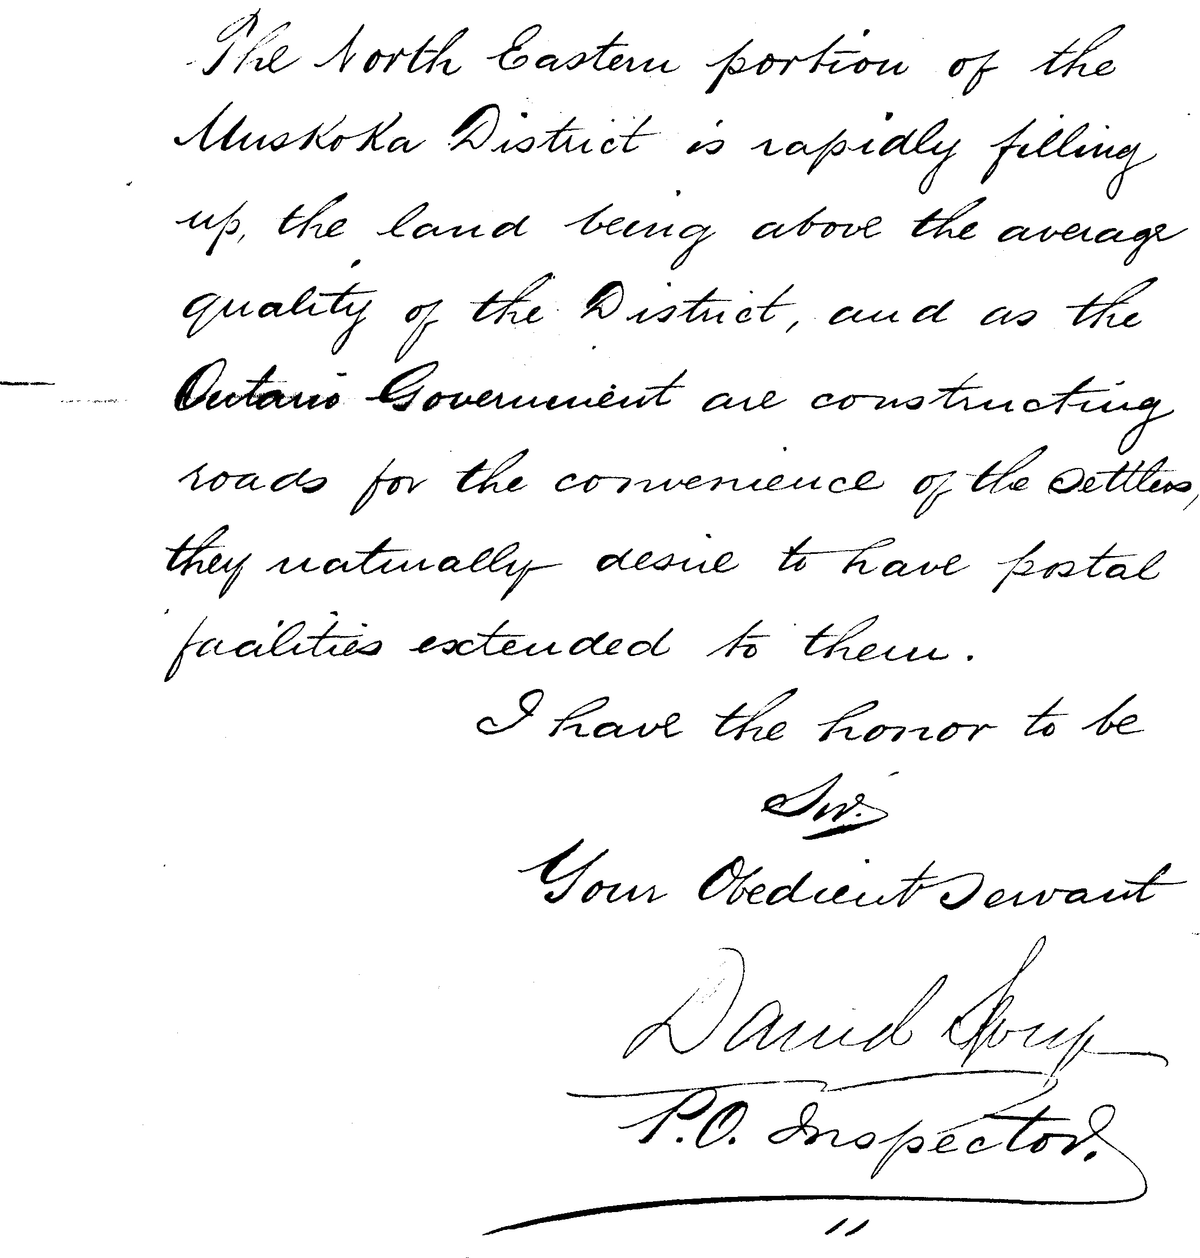 The North Eastern portion of the
Muskoka District is rapidly filling
up, the land being above the average
quality of the District, and as the
Ontario Government are constructing
roads for the convenience of the settlers,
they naturally desire to have postal
facilities extended to them.
I have the honor to be
Sir.
Your Obedient Servant
David
P.O. Inspector.
"